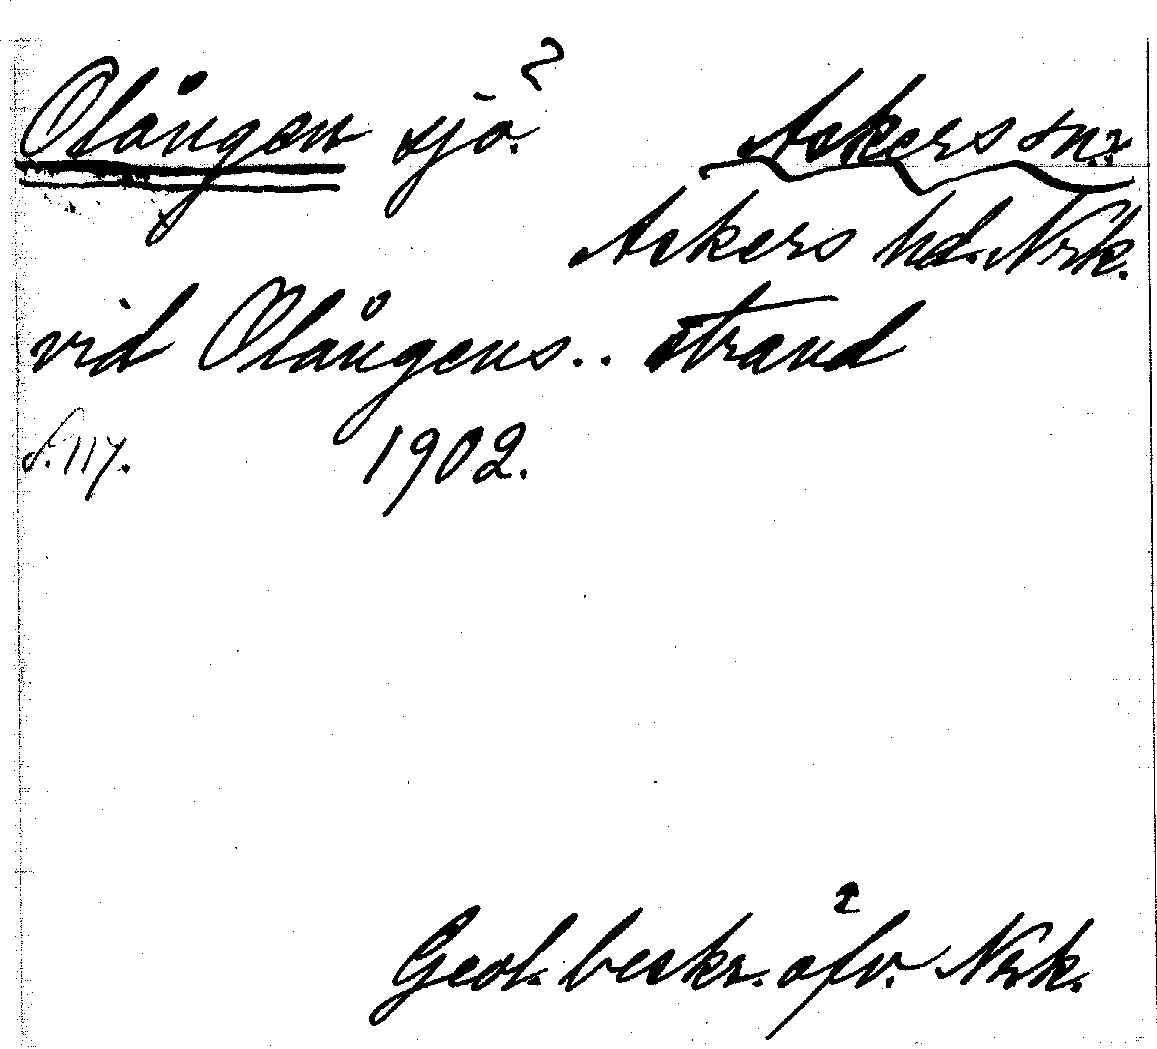 Olången sjö? Askers sn?
Askers hd. Nrk.
vid Olångens .. strand
s. 117. 1902.
Geol. beskr. öfv. Nrk.